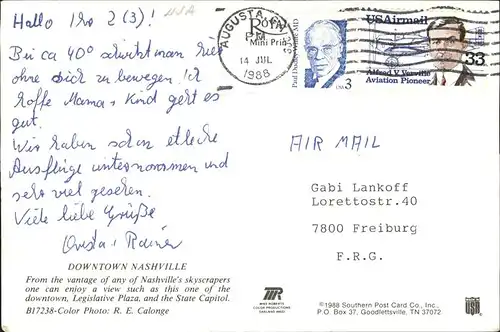 Hallo Ihr 2 (3)! USA
Bei ca 40° schwitzt man hier
ohne sich zu bewegen. Ich
hoffe Mama + Kind geht es
gut.
Wir haben schon etliche
Ausflüge unternommen und
sehr viel gesehen.
Viele liebe Grüße
Rainer
DOWNTOWN NASHVILLE
From the vantage of any of Nashville's skyscrapers
one can enjoy a view such as this one of the
downtown, Legislative Plaza, and the State Capitol.
B17238-Color Photo: R. E. Calonge
MIKE ROBERTS
COLOR PRODUCTIONS
OAKLAND
AUGUSTA, GA
PM
14 JUL
1988
Mini Prin
Paul Dudley White MD
USA 3
USAirmail
33
Alfred V. Verville
Aviation Pioneer
AIR MAIL
Gabi Lankoff
Lorettostr.40
7800 Freiburg
F.R.G.
©1988 Southern Post Card Co., Inc.
P.O. Box 37, Goodlettsville, TN 37072